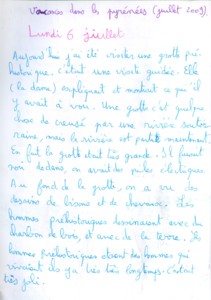 Vacances dans les pyrénées (juillet 2009)
Lundi 6 juillet
Aujourd'hui j'ai été visiter une grotte pré-
historique. c'était une visite guidée. Elle
(la dame) expliquait et montrait ce qu'il
y avait à voir. Une grotte c'est quelque
chose de creusé par une rivière souter-
raine, mais la rivière est partie maintenant.
En fait la grotte était très grande. Il faisait
noir dedans, on avait des piles électriques.
Au fond de la grotte, on a vu des
dessins de bisons et de chevaux. Les
hommes préhistoriques dessinaient avec du
charbon de bois, et avec de la terre. Les
hommes préhistoriques étaient des hommes qui
vivaient il y a très très longtemps. C'était
très joli.